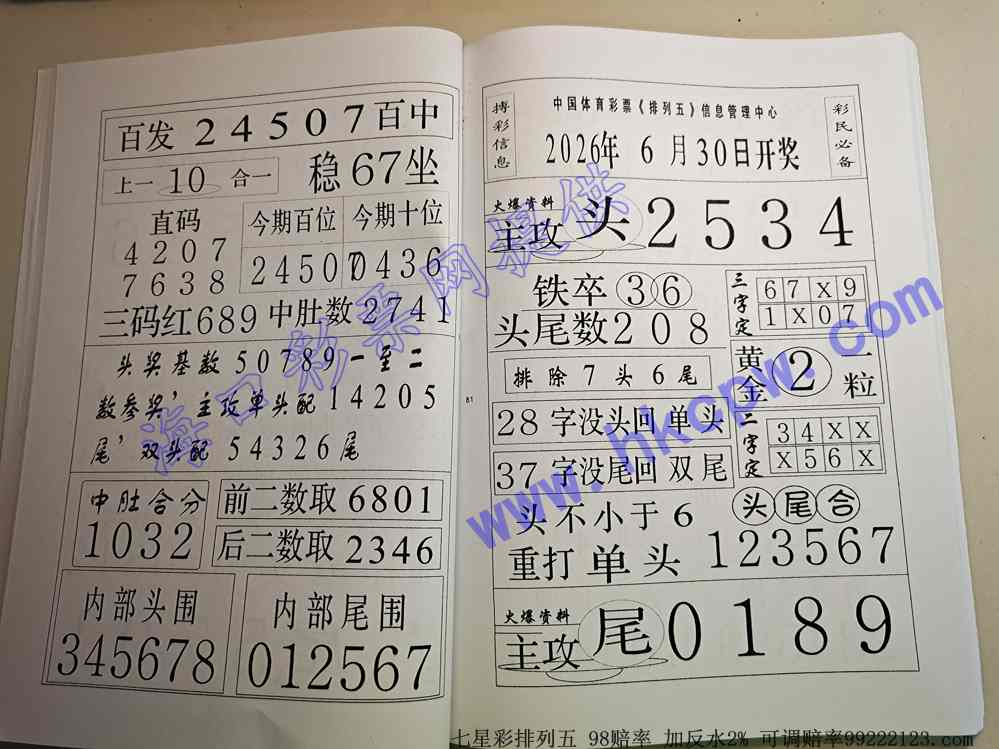 百发 24507 百中
上一 10 合一
稳67坐
直码
4207
7638
今期百位
24507
今期十位
0436
三码红689 中肚数2741
头奖基数50789一至二
数参奖’主攻单头配14205
尾’双头配54326尾
中肚合分
1032
前二数取6801
后二数取2346
内部头围
345678
内部尾围
012567
81
搏彩信息
中国体育彩票《排列五》信息管理中心
2026年 6月30日开奖
彩民必备
火爆资料
主攻 头 2534
铁卒 36
头尾数208
三字定
67X9
1X07
排除7头6尾
黄金 2 一粒
28字没头回单头
37字没尾回双尾
二字定
34XX
X56X
头不小于6
头尾合
重打单头 123567
火爆资料
主攻 尾 0189
海口彩票网提供
www.hkcpw.com
七星彩排列五 98赔率 加反水2% 可调赔率99222123.com